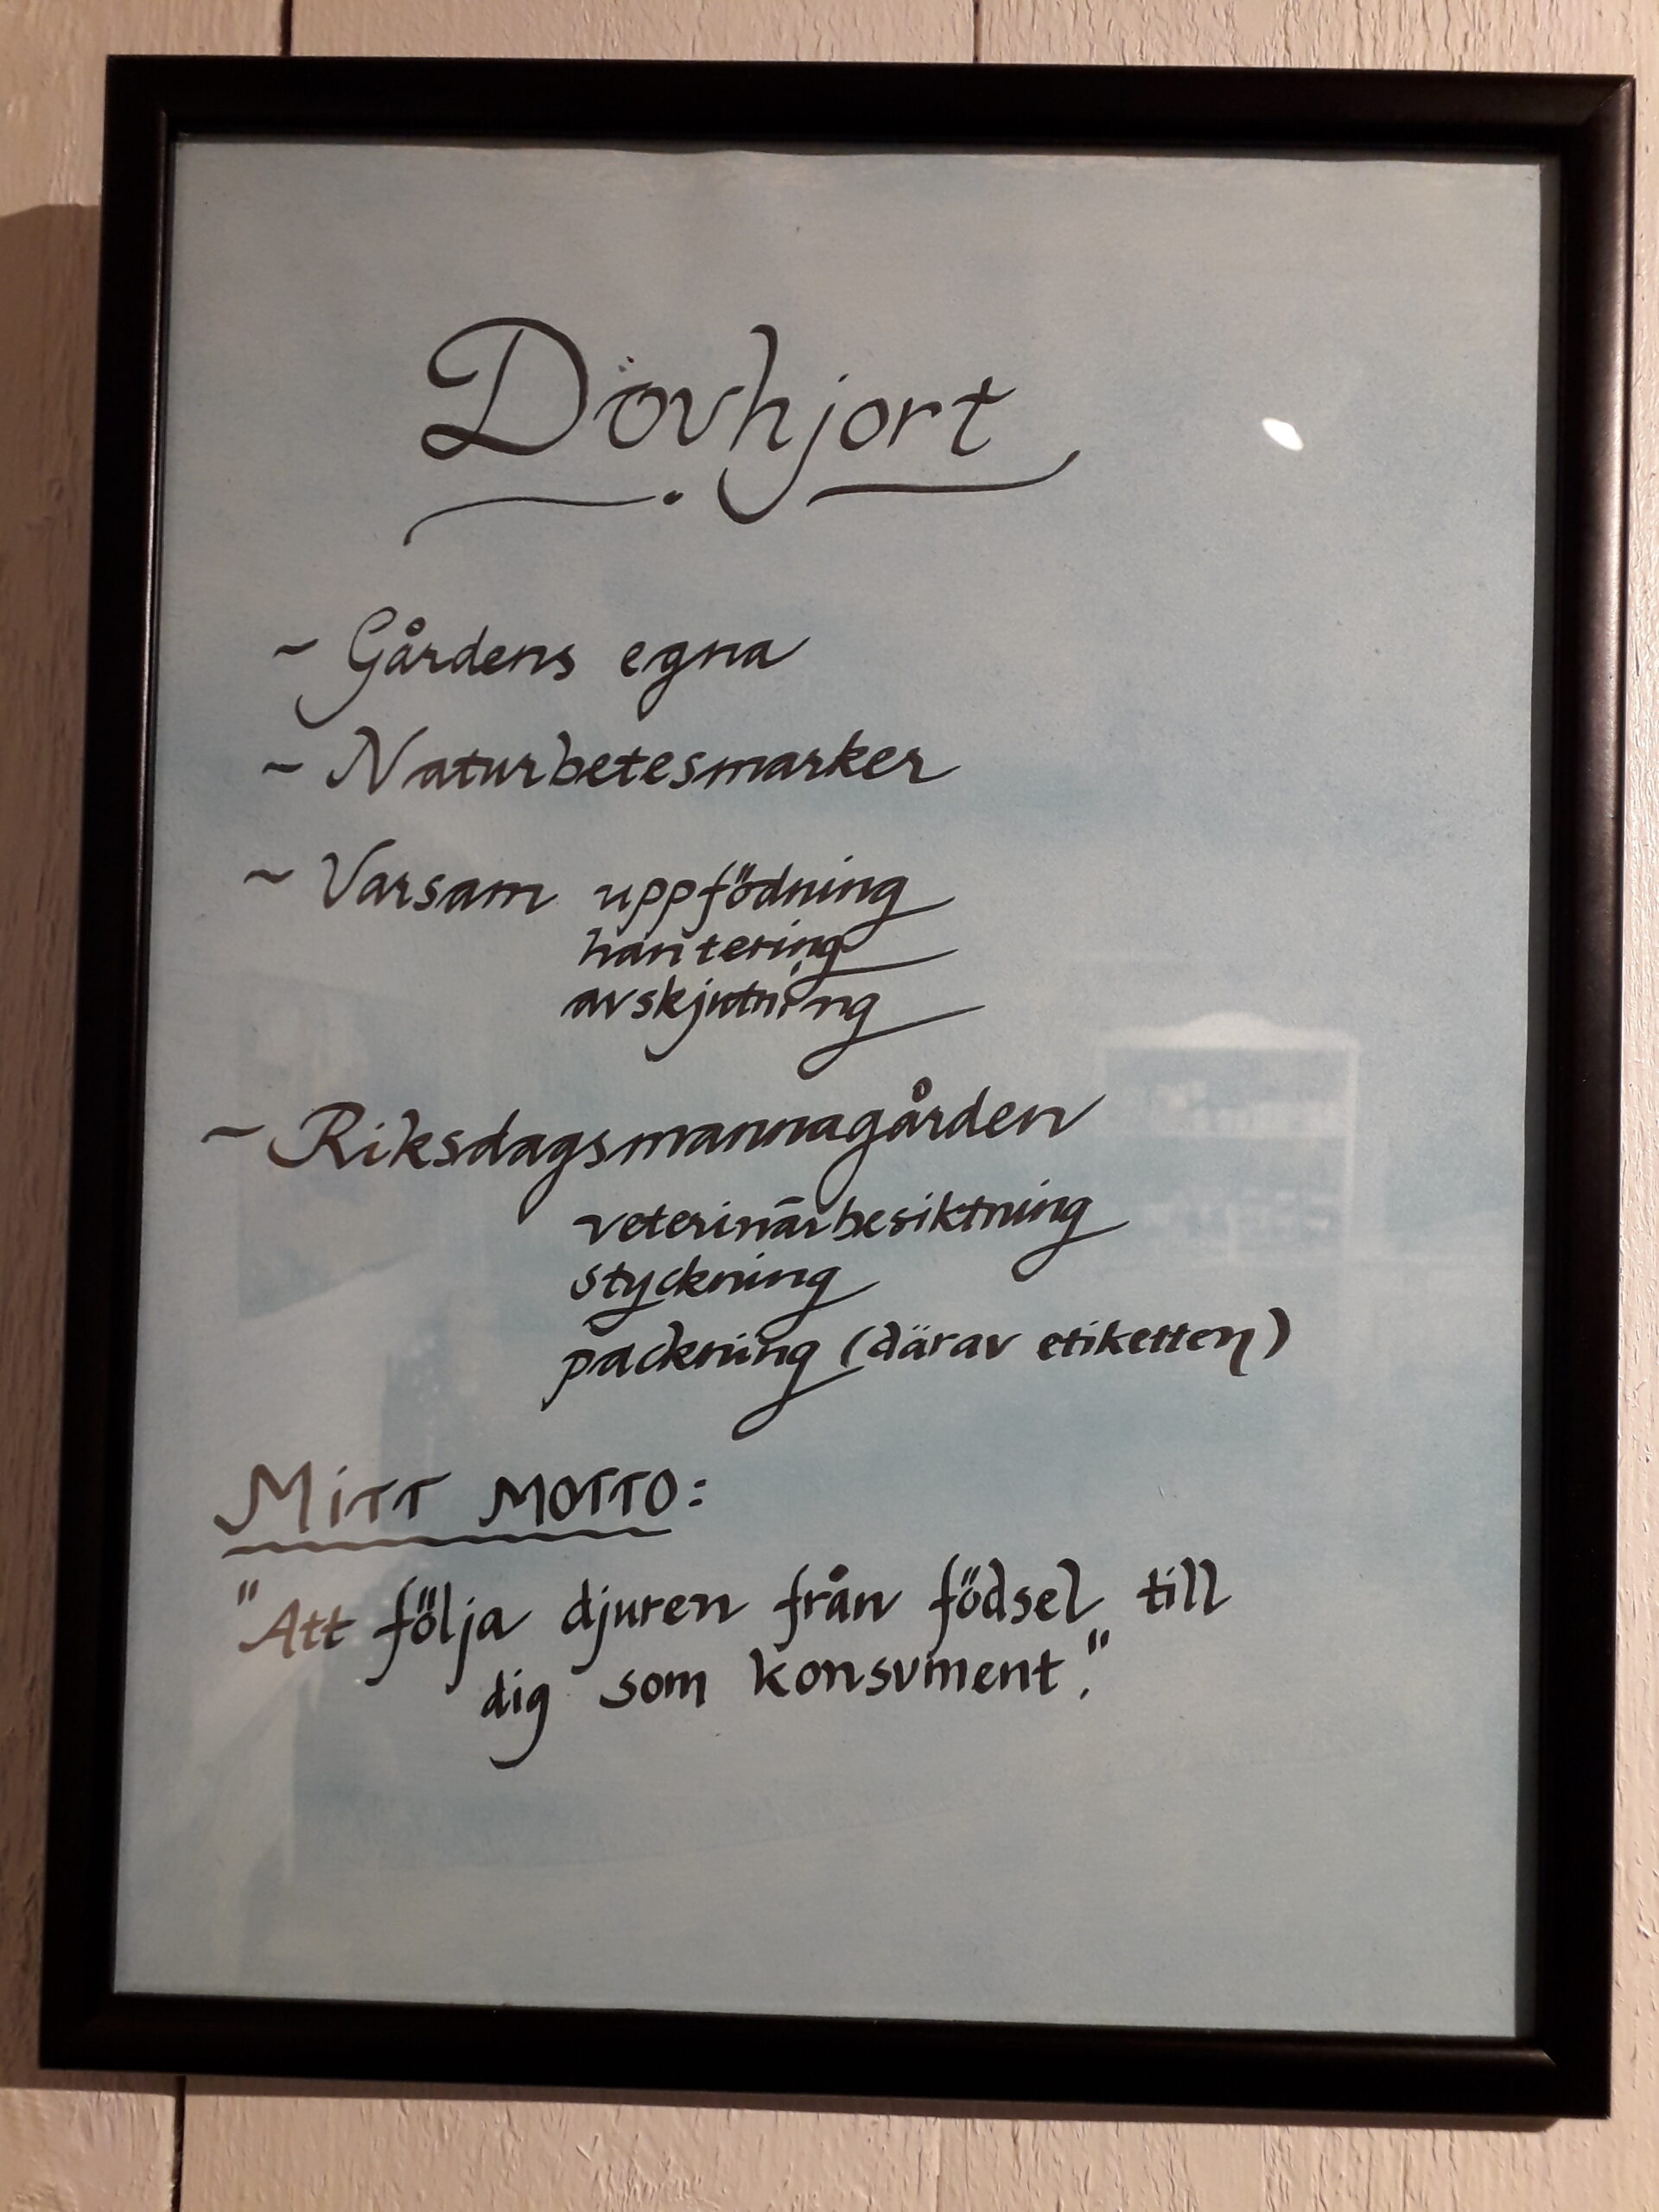 Dovhjort
~ Gårdens egna
~ Naturbetesmarker
~ Varsam uppfödning
hantering
avskjutning
~ Riksdagsmannagården
veterinärbesiktning
styckning
packning (därav etiketten)
MiTT MOTTO:
"Att följa djuren från födsel till
dig som konsument."